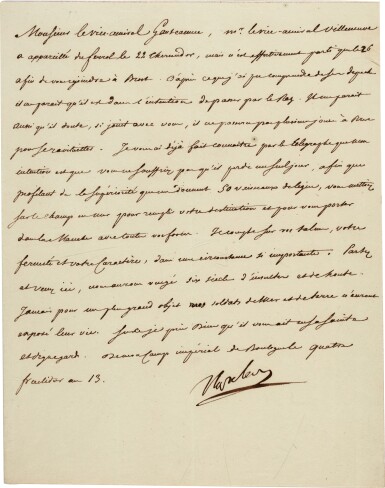 Monsieur le vice-amiral Ganteaume, Mr. le vice-amiral Villeneuve
a appareillé du ferrol le 22 thermidor, mais n'est effectivement parti que le 26
afin de vous joindre à Brest. D'après ce que j'ai pu comprendre de ses depeches
il me paraît qu'il est dans l'intention de passer par le Raz. Il me parait
aussi qu'il doute, si joint avec vous, il ne pourra pas plusieurs jours à Brest
pour se ravitailler. Je vous ai déjà fait connaitre par le télégraphe que mon
intention est que vous ne souffriez pas qu'il perde un seul jour, afin que
profitant de la supériorité que me donnent 50 vaisseaux de ligne, vous mettiez
sur le champ en mer pour remplir votre destination et pour vous porter
dans la Manche avec toutes vos forces. Je compte sur vos talens, votre
fermeté et votre Caractère, dans une circonstance si importante. Partez
et venez ici, nous aurons vengé six siècles d'insultes et de honte.
Jamais pour un plus grand objet mes soldats de Mer et de terre n'auront
exposé leur vie. Sur ce je prie Dieu qu'il vous ait en sa sainte
et digne garde. De mon Camp impérial de Boulogne le quatre
fructidor an 13.